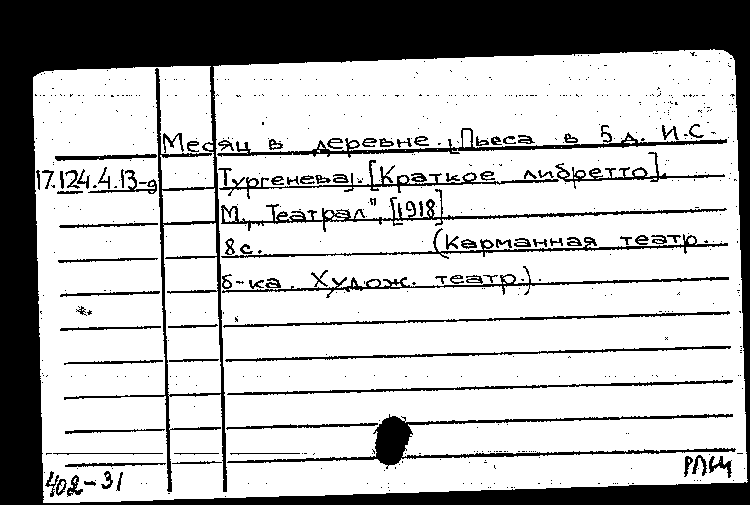 Месяц в деревне. [Пьеса в 5 д. И.С.
17.124.4.13-д Тургенева]. [Краткое либретто].
М., "Театрал", [1918]
8 с. (Карманная театр.
б-ка. Худож. театр.).
402-31